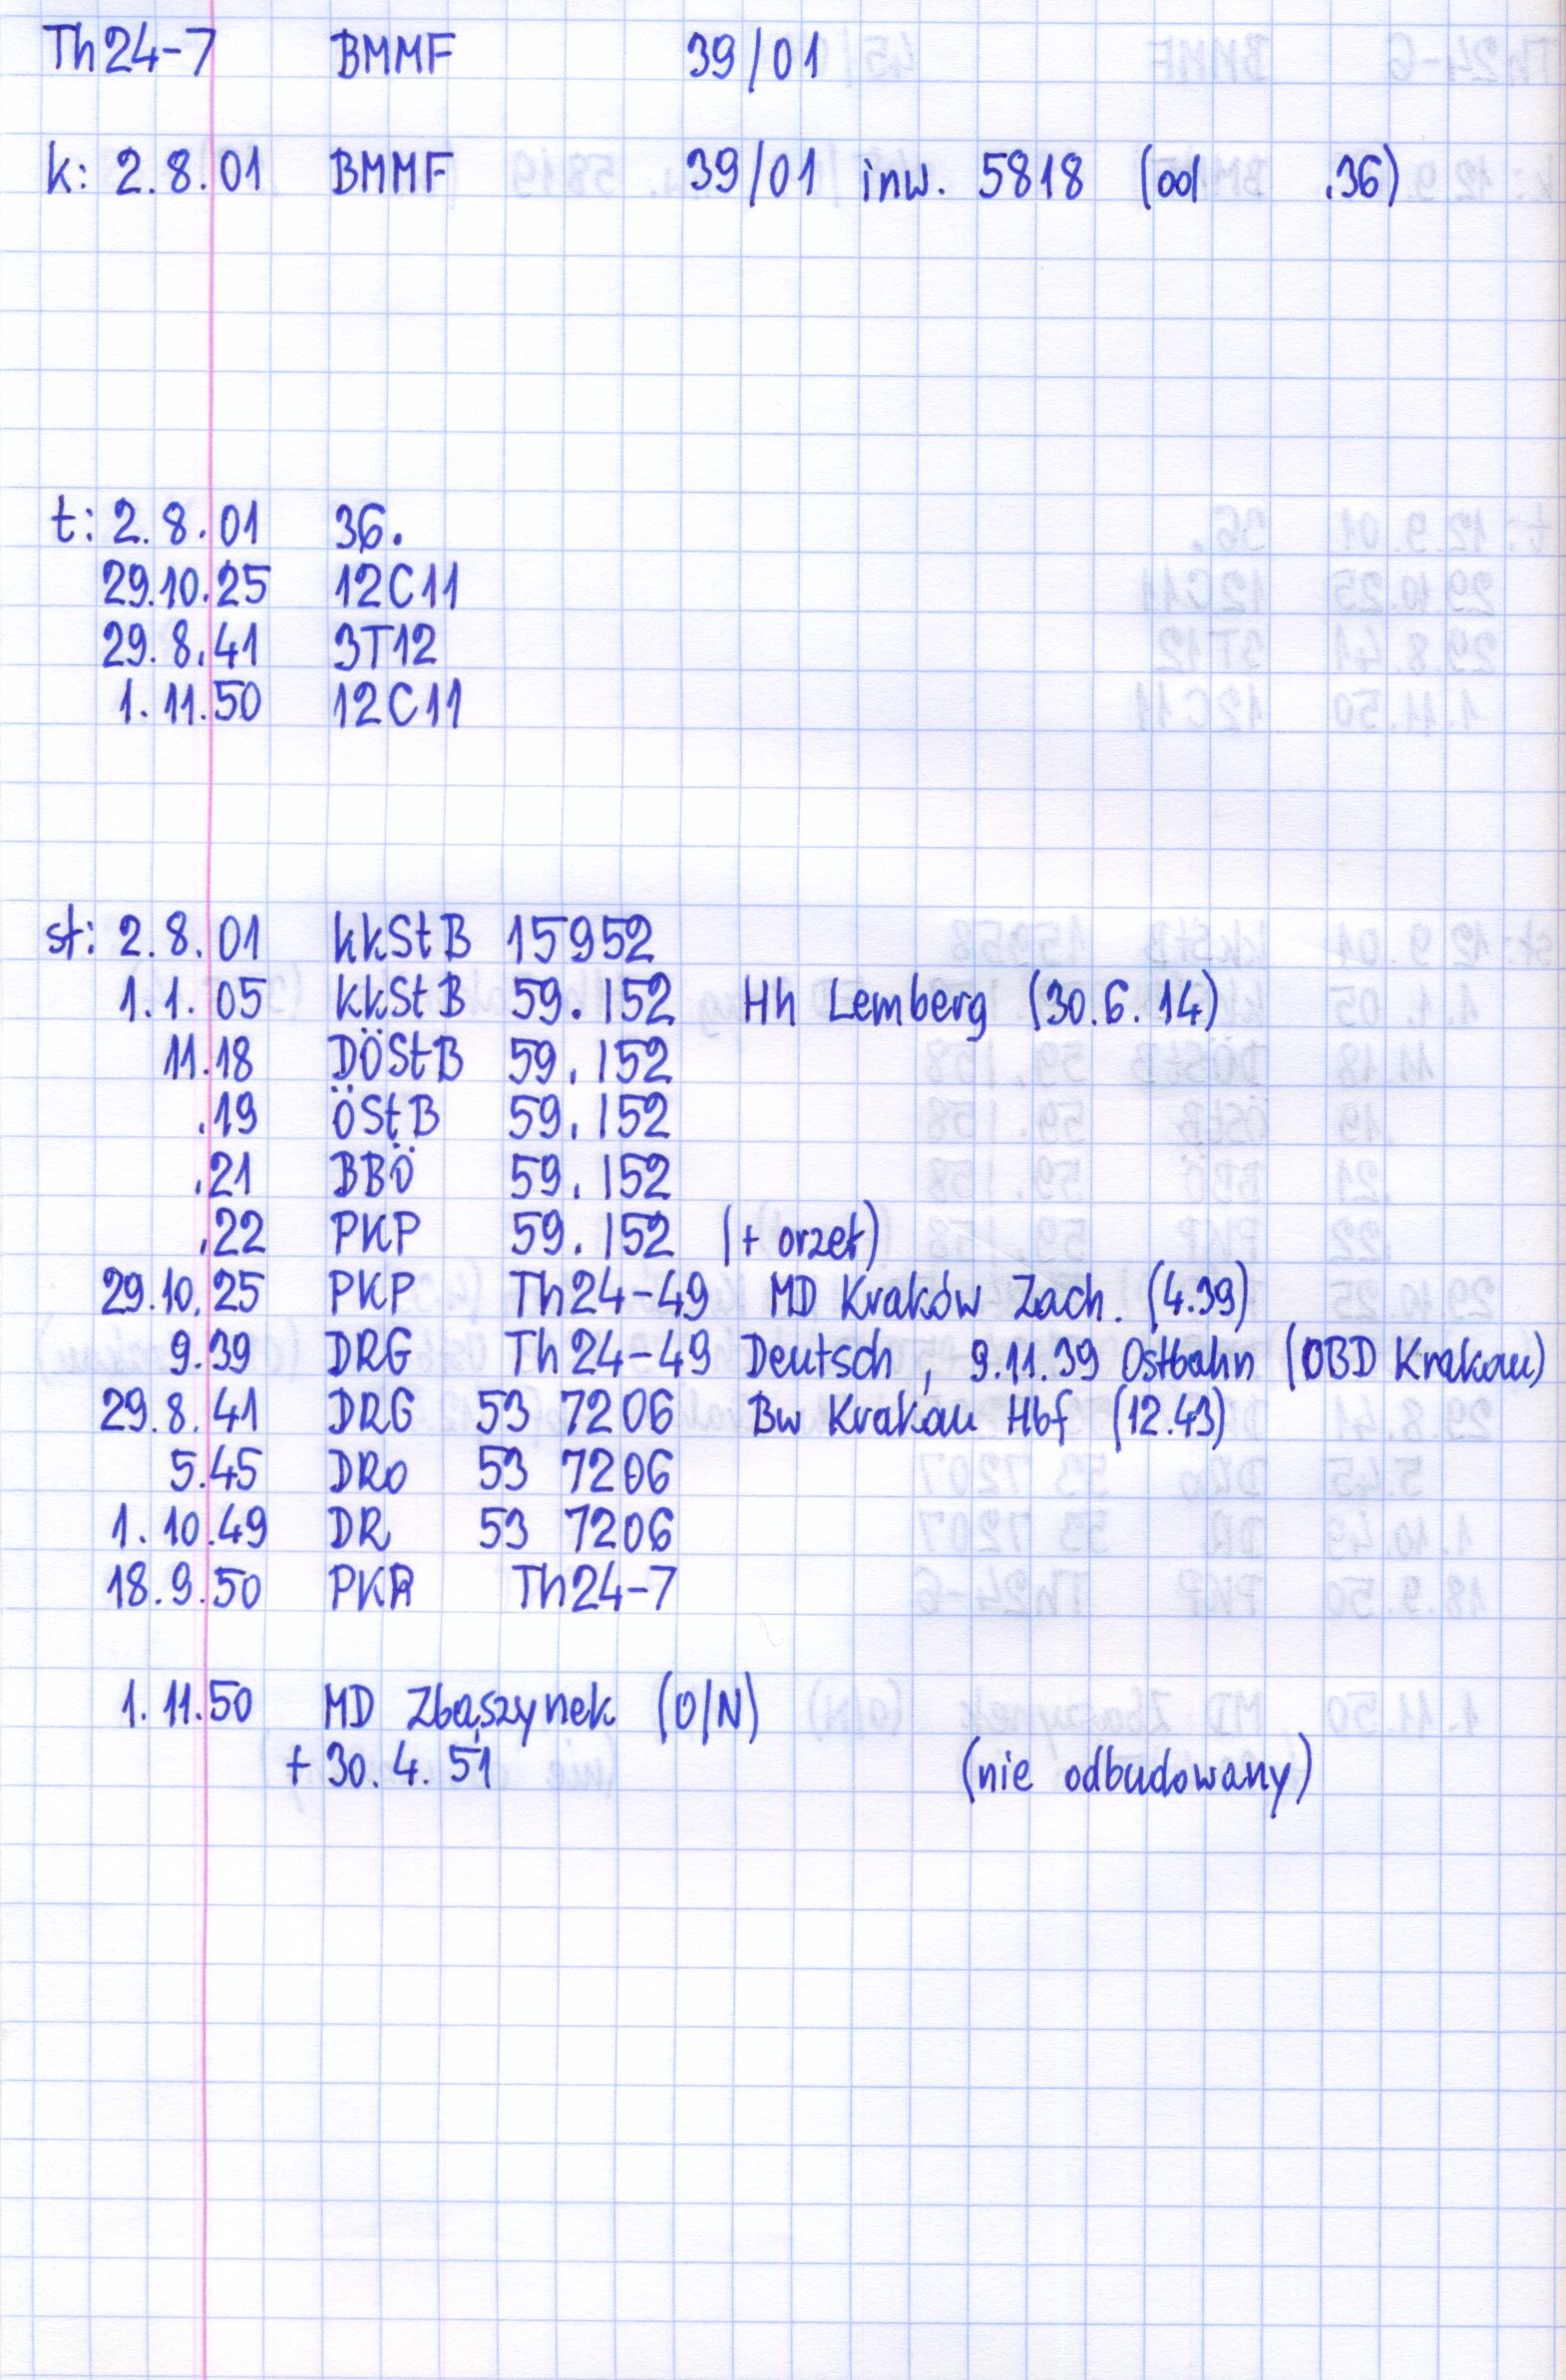 Th24-7 BMMF 39/01
k: 2.8.01 BMMF 39/01 inw. 5818 (od .36)
t: 2.8.01 36.
29.10.25 12C11
29.8.41 3T12
1.11.50 12C11
st: 2.8.01 kkStB 15952
1.1.05 kkStB 59.152 Hh Lemberg (30.6.14)
11.18 DÖStB 59.152
.19 ÖStB 59.152
.21 BBÖ 59.152
.22 PKP 59.152 (+ orzeł)
29.10.25 PKP Th24-49 MD Kraków Zach. (4.39)
9.39 DRG Th24-49 Deutsch, 9.11.39 Ostbahn (OBD Krakau)
29.8.41 DRG 53 7206 Bw Krakau Hbf (12.43)
5.45 DRo 53 7206
1.10.49 DR 53 7206
18.9.50 PKP Th24-7
1.11.50 MD Zbąszynek (O/N)
+ 30.4.51 (nie odbudowany)